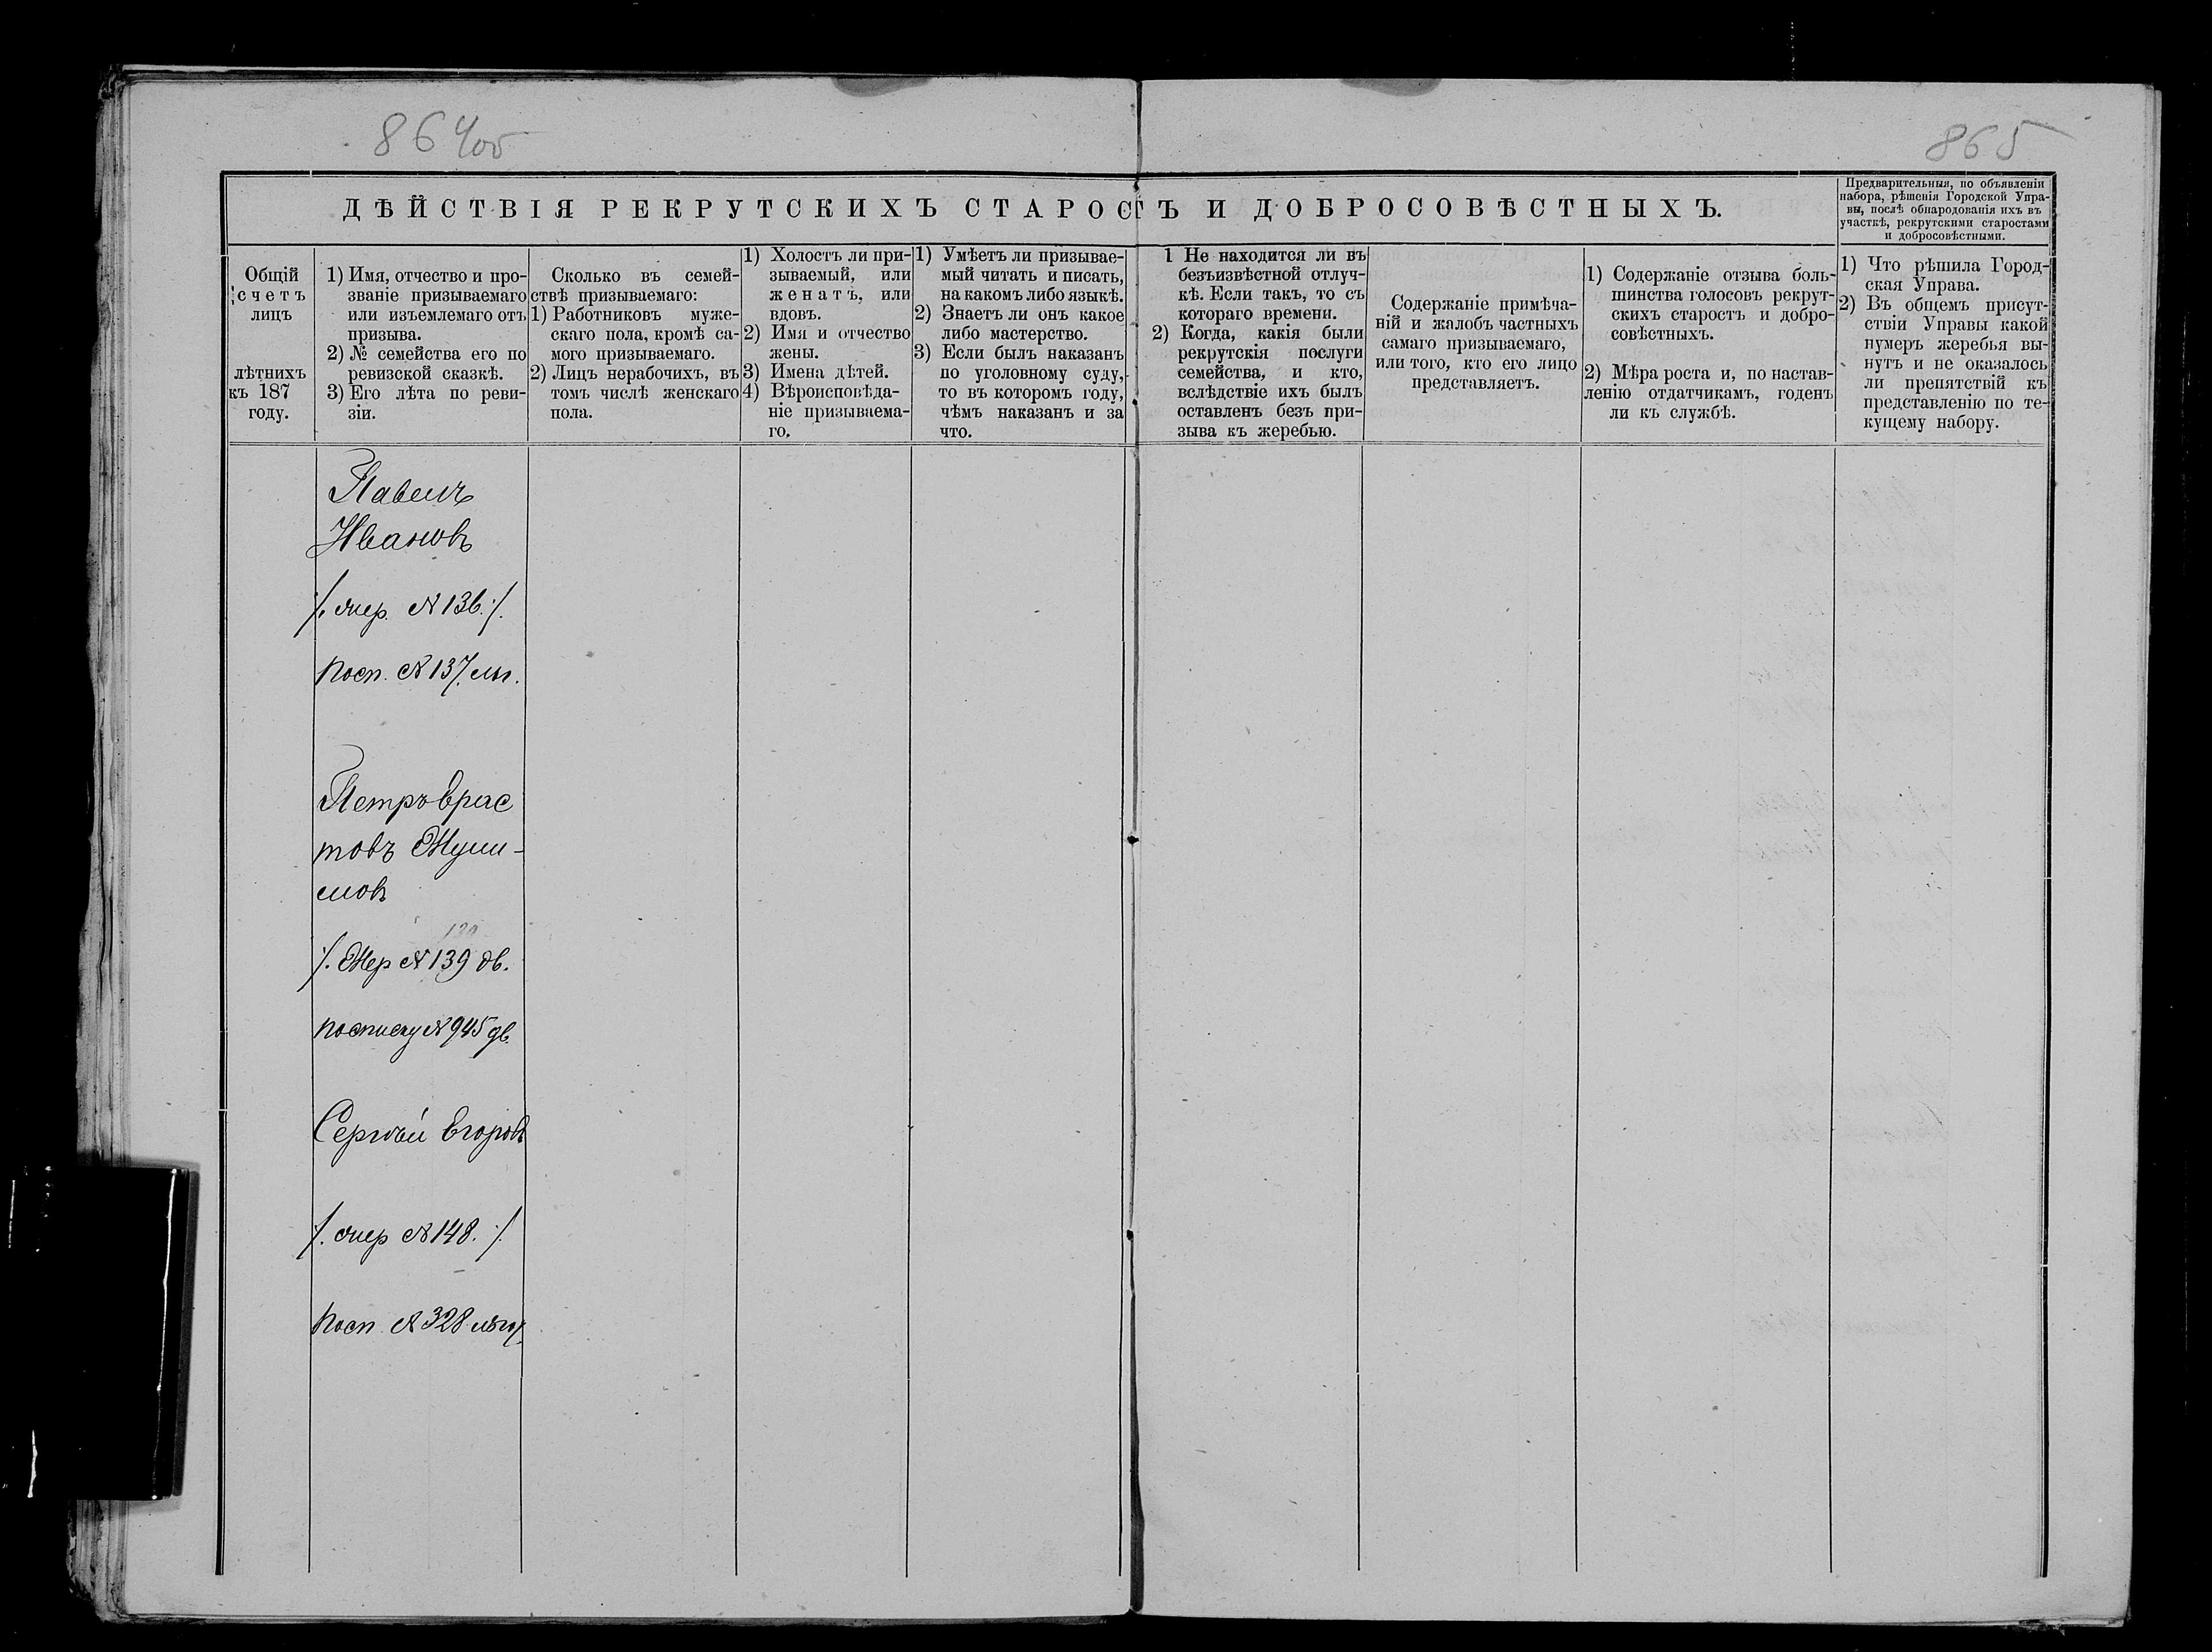 864об
865
ДѢЙСТВІЯ РЕКРУТСКИХЪ СТАРОСТЪ И ДОБРОСОВѢСТНЫХЪ.
Предварительныя, по объявленіи
набора, рѣшенія Городской Упра-
вы, послѣ обнародованія ихъ въ
участкѣ, рекрутскими старостами
и добросовѣстными.
Общій
счетъ
лицъ
лѣтнихъ
къ 187
году.
1) Имя, отчество и про-
званіе призываемаго
или изъемлемаго отъ
призыва.
2) № семейства его по
ревизской сказкѣ.
3) Его лѣта по реви-
зіи.
Сколько въ семей-
ствѣ призываемаго:
1) Работниковъ муже-
скаго пола, кромѣ са-
мого призываемаго.
2) Лицъ нерабочихъ, въ
томъ числѣ женскаго
пола.
1) Холостъ ли при-
зываемый, или
женатъ, или
вдовъ.
2) Имя и отчество
жены.
3) Имена дѣтей.
4) Вѣроисповѣда-
ніе призываема-
го.
1) Умѣетъ ли призывае-
мый читать и писать,
на какомъ либо языкѣ.
2) Знаетъ ли онъ какое
либо мастерство.
3) Если былъ наказанъ
по уголовному суду,
то въ которомъ году,
чѣмъ наказанъ и за
что.
1 Не находится ли въ
безъизвѣстной отлуч-
кѣ. Если такъ, то съ
котораго времени.
2) Когда, какія были
рекрутскія послуги
семейства, и кто,
вслѣдствіе ихъ былъ
оставленъ безъ при-
зыва къ жеребью.
Содержаніе примѣча-
ній и жалобъ частныхъ
самаго призываемаго,
или того, кто его лицо
представляетъ.
1) Содержаніе отзыва боль-
шинства голосовъ рекрут-
скихъ старостъ и добро-
совѣстныхъ.
2) Мѣра роста и, по настав-
ленію отдатчикамъ, годенъ
ли къ службѣ.
1) Что рѣшила Город-
ская Управа.
2) Въ общемъ присут-
ствіи Управы какой
нумеръ жеребья вы-
нутъ и не оказалось
ли препятствій къ
представленію по те-
кущему набору.
Павелъ
Ивановъ
/. жер. № 136. /.
по сп. № 137. льг.
Петръ Ерас
товъ
/. Жер № 139 дв.
по списку № 945 дв.
Сергѣй Егоровъ
/. жер № 148. /.
по сп. № 328 льгот